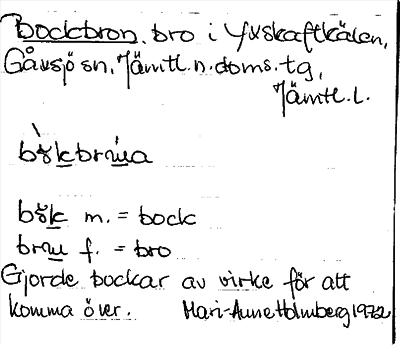 Bockbron, bro i Yxskaftkälen,
Gåxsjö sn, Jämtl. n. doms. tg,
Jämtl. L.
bo᷈kbruua
m. = bock
f. = bro
Gjorde bockar av virke för att
komma över. Mari-Anne Holmberg 1972